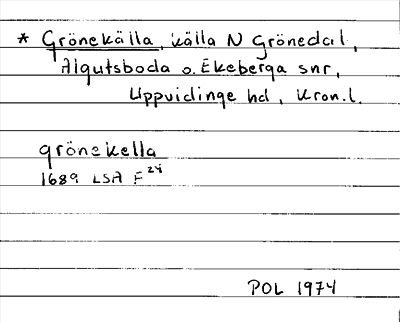 * Grönekälla, källa N Grönedal,
Älgutsboda o. Ekeberga snr,
Uppvidinge hd, Kron.l.
grönekella
1689 LSA F 24
POL 1974